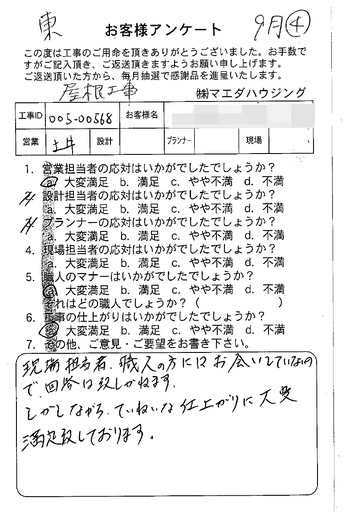 東
お客様アンケート
9月④
この度は工事のご用命を頂きありがとうございました。お手数で
すがご記入頂き、ご返送頂きますようお願い申し上げます。
ご返送頂いた方から、毎月抽選で感謝品を進呈いたします。
屋根工事
㈱マエダハウジング
工事ID 005-00568 お客様名
営業 土井 設計 プランナー 現場
1. 営業担当者の応対はいかがでしたでしょうか？
a. 大変満足 b. 満足 c. やや不満 d. 不満
2. 設計担当者の応対はいかがでしたでしょうか？
a. 大変満足 b. 満足 c. やや不満 d. 不満
3. プランナーの応対はいかがでしたでしょうか？
a. 大変満足 b. 満足 c. やや不満 d. 不満
4. 現場担当者の応対はいかがでしたでしょうか？
a. 大変満足 b. 満足 c. やや不満 d. 不満
5. 職人のマナーはいかがでしたでしょうか？
a. 大変満足 b. 満足 c. やや不満 d. 不満
それはどの職人でしょうか？（　　　　　　）
6. 工事の仕上がりはいかがでしたでしょうか？
a. 大変満足 b. 満足 c. やや不満 d. 不満
7. その他、ご意見・ご要望をお書き下さい。
現場担当者、職人の方にはお会いしていないの
で、回答は致しかねます。
しかしながら、ていねいな仕上がりに大変
満足致しております。